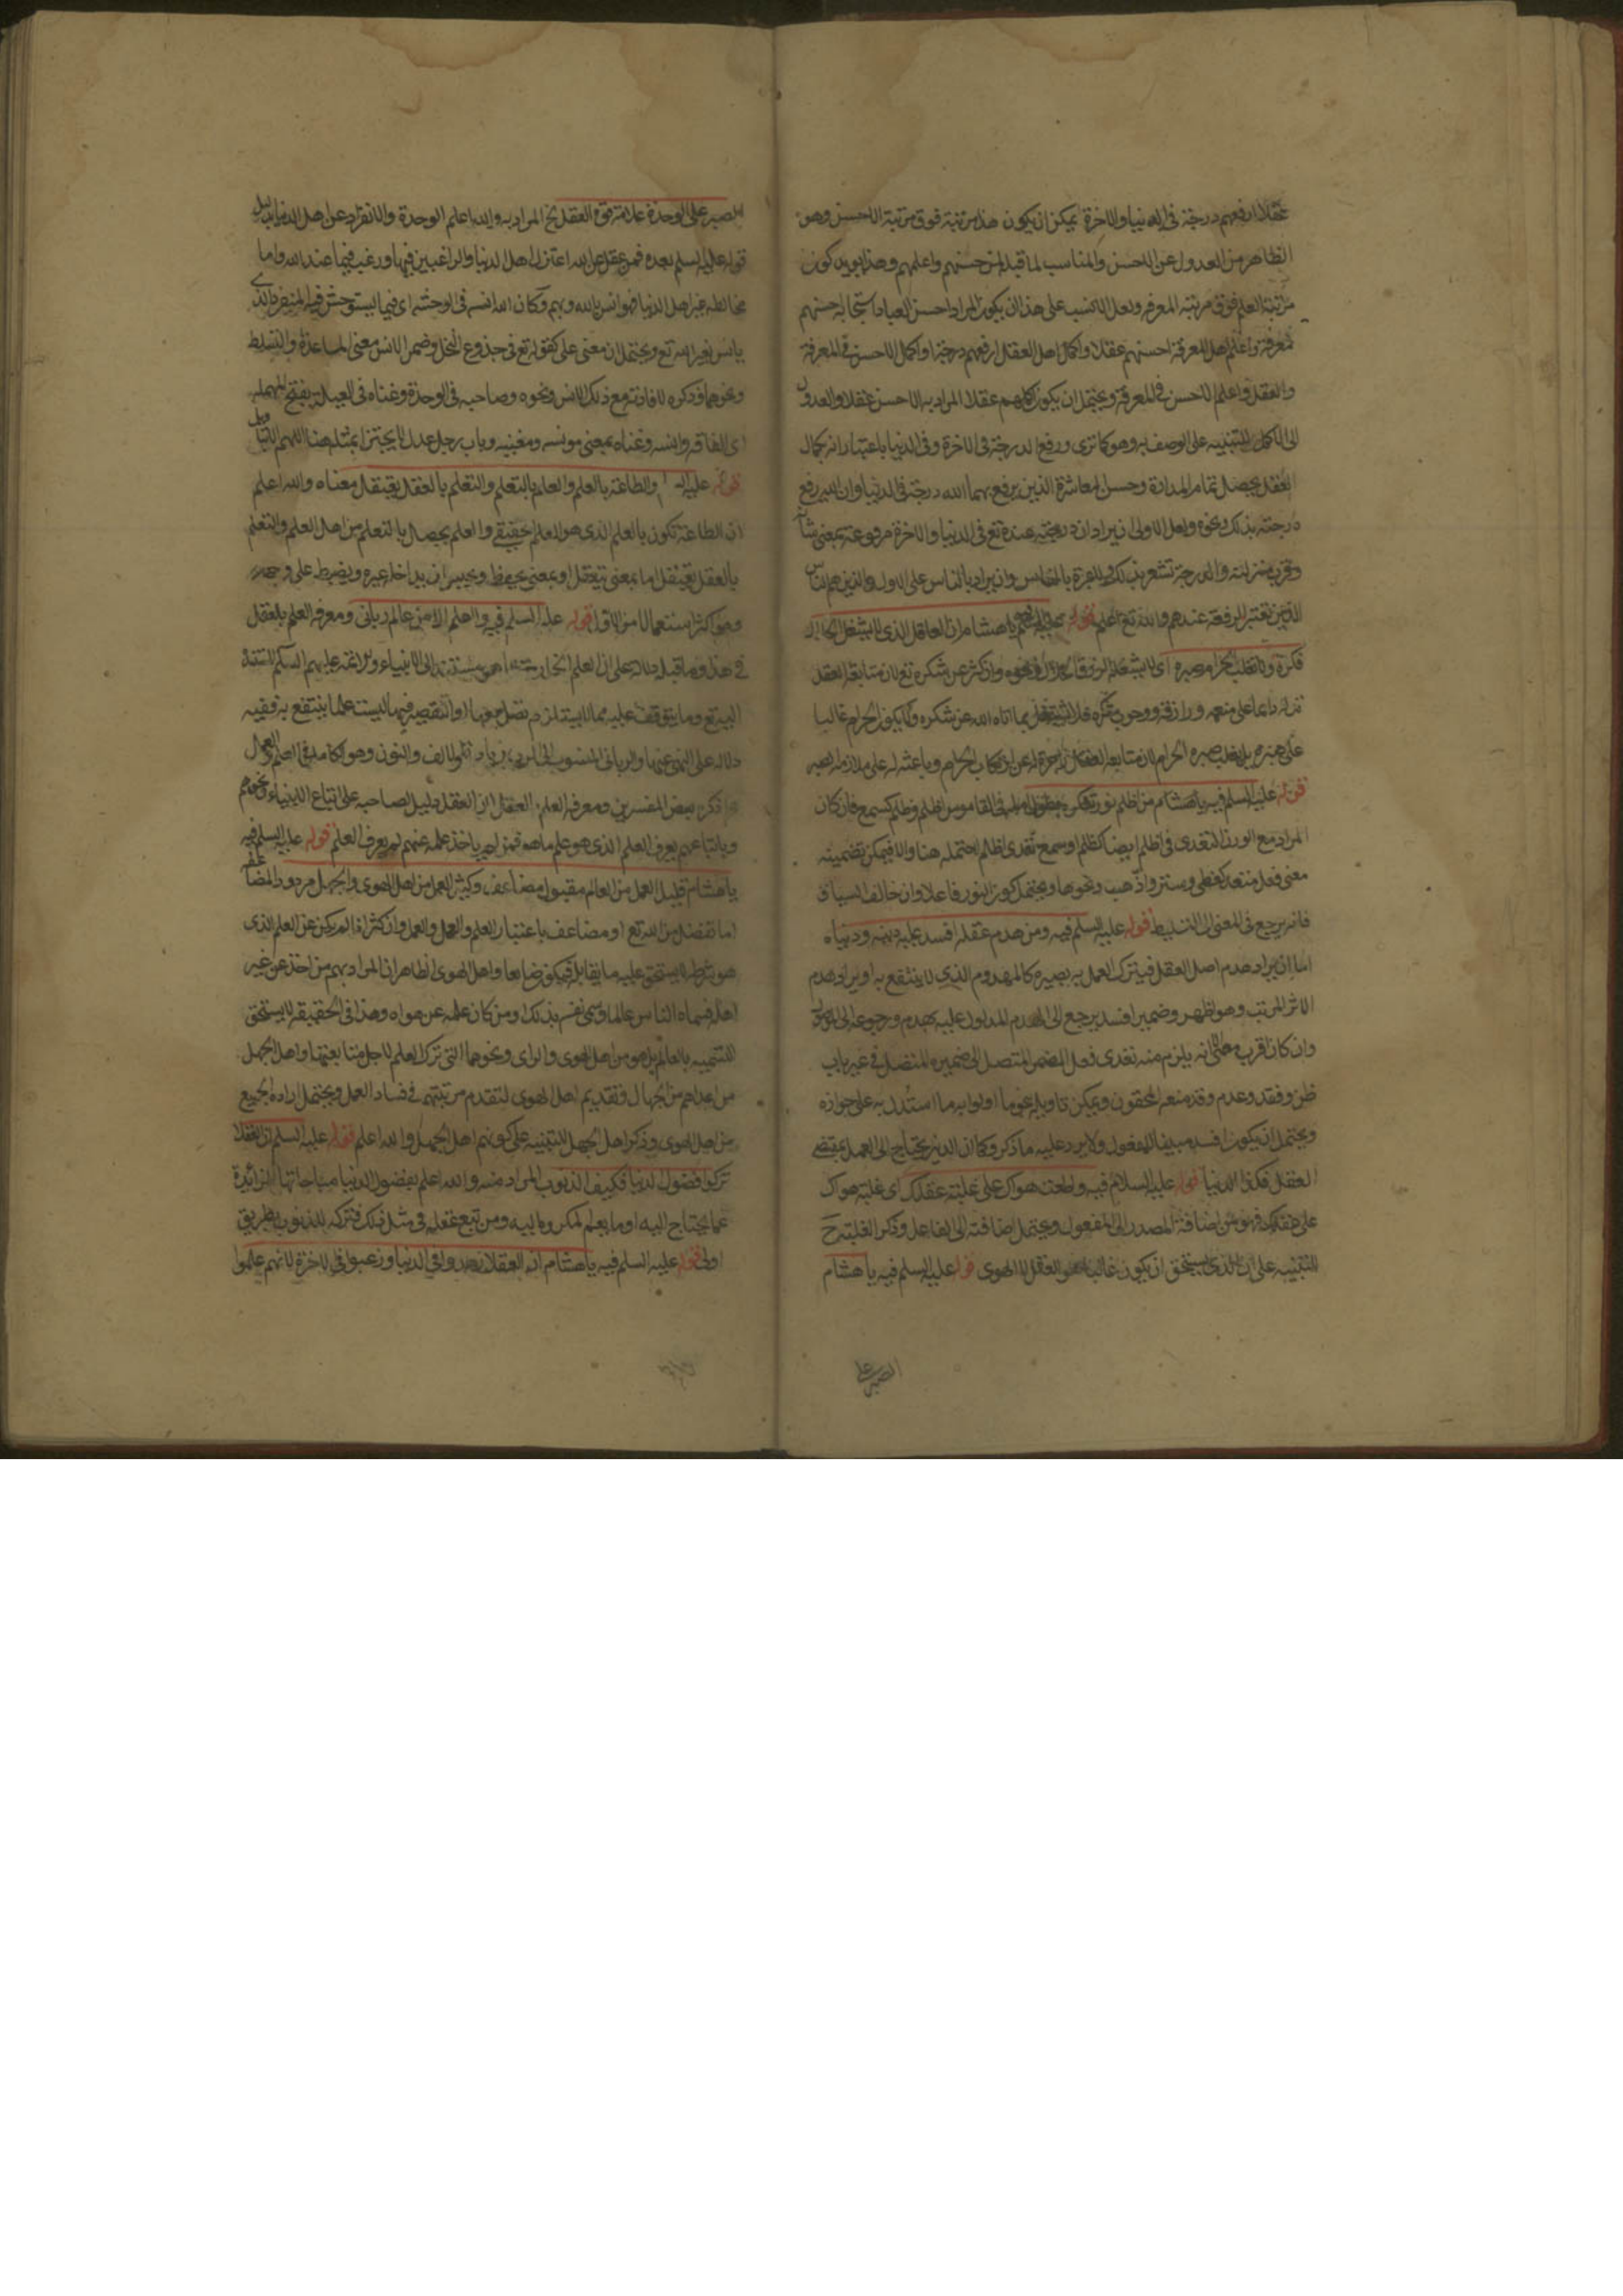 عقلا ارفعهم درجة في الدنيا والاخرة يمكن ان يكون هذا مرتبة فوق مرتبة الاحسن وهو
الظاهر من العدول عن الاحسن والمناسب لما قبله من حسنهم واعلمهم وهذا يؤيد كون
مرتبة العلم فوق مرتبة المعرفه ولعل الانسب على هذا ان يكون المراد احسن العباد استجابة احسنهم
معرفة واعلم اهل المعرفة احسنهم عقلا واكمل اهل العقل ارفعهم درجة او اكمل الاحسن في المعرفة
والعقل واعلم الاحسن في المعرفة ويحتمل ان يكون اكملهم عقلا المراد به الاحسن عقلا والعدول
الى الاكمل للتنبيه على الوصف به وهو كما ترى ورفع الدرجة في الاخرة وفي الدنيا باعتبار انه بكمال
العقل يحصل تمام المداراة وحسن المعاشرة الذين يرفع بهما الله درجة في الدنيا وان لم يرفع
درجته بذلك ونحوه ولعل الاولى ان يراد ان درجته عنده تع في الدنيا والاخرة مرفوعة بمعنى شأنه
وقرب منزلته والدرجة تشعر بذلك والعبرة بالناس وان يراد بالناس على الاول الذين هم الناس
الذين تعتبر الرفعة عندهم والله تع اعلم قوله عليه السلم يا هشام ان العاقل الذي لا يشغل الحلال
شكره ولا يغلب الحرام صبره اى لا يشغله الرزق الحلال ونحوه وان كثر عن شكره تع لان متابعة العقل
تدله دائما على منعمه ورازقه ووجوب شكره فلا يشتغل بما اتاه الله عن شكره ولا يكون الحرام غالبا
على صبره بل يغلب صبره الحرام لان متابعة العقل زاجرة له عن ارتكاب الحرام وباعثة له على ملازمة الصبر
قوله عليه السلم فيه يا هشام من اظلم نور تفكره بطول امله في القاموس اظلم وظلم كسمع فان كان
المراد مع الورود التعدى في اظلم ايضا كظلم او سمع تعدى اظلم احتمله هنا والا فيمكن تضمينه
معنى فعل متعد كغطى وستر واذهب ونحوها ويحتمل كون النور فاعلا وان خالف السياق
فانه يرجع في المعنى الى التسليط قوله عليه السلم فيه ومن هدم عقله افسد عليه دينه ودنياه
اما ان يراد هدم اصل العقل فبترك العمل به يصيره كالمهدوم الذي لا ينتفع به او يراد هدم
الاثر المرتب وهو اظهر وضمير افسد يرجع الى الهدم المدلول عليه بهدم ورجوعه الى الموصول
وان كان اقرب معنى لانه يلزم منه تعدى فعل المضمر المتصل الى ضميره المتصل في غير باب
ظن وفقد وعدم وقد منعه المحققون ويمكن تاويله بنحو ما اولوا به ما استدل به على جوازه
ويحتمل ان يكون افسد مبنيا للمفعول ولا يرد عليه ما ذكر وكما ان الدين يحتاج الى العمل بمقتضى
العقل فكذا الدنيا قوله عليه السلام فيه واطعت هواك على غلبة عقلك اى غلبة هواك
على عقلك فهو من اضافة المصدر الى المفعول ويحتمل اضافته الى الفاعل وذكر الغلبة ح
للتنبيه على ان الذي يستحق ان يكون غالبا هو العقل لا الهوى قوله عليه السلم فيه يا هشام
الصبر على
الصبر على الوحدة علامة قوة العقل الخ المراد به والله اعلم الوحدة والانفراد عن اهل الدنيا بدليل
قوله عليه السلم بعده فمن عقل عن الله اعتزل اهل الدنيا والراغبين فيها ورغب فيما عند الله واما
مخالطة غير اهل الدنيا فهو انس بالله وبهم وكان الله انسه في الوحشة اى فيما يستوحش فيه المنفرد الذى
يانس بغير الله تع ويحتمل ان معنى على كقوله تع في جذوع النخل وضمن الانس معنى المساعدة والتسلط
ونحوهما وذكره لافادته مع ذلك الانس ونحوه وصاحبه في الوحدة وغناه في العيلة بفتح المهملة
اى الفاقه وانسه وغناه بمعنى مونسه ومغنيه وباب رجل عدل لا يجتزا بمثله هنا اللهم الا بتاويل
قوله عليه السلم والطاعة بالعلم والعلم بالتعلم والتعلم بالعقل يعتقل معناه والله اعلم
ان الطاعة تكون بالعلم الذى هو العلم الحقيقي والعلم يحصل بالتعلم من اهل العلم والتعلم
بالعقل يعتقل اما بمعنى يتعقل او بمعنى يحفظ ويحبس ان يداخله غيره ويضبط على وجهه
وهو اكثر استعمالا من الاول قوله عليه السلم فيه ولا علم الا من عالم رباني ومعرفة العلم بالعقل
في هذا وما قبله دلالة على ان العلم الحقيقي هو مستند الى الانبياء والائمة عليهم السلم لاستناده
اليه تع وما يتوقف عليه مما لا يستلزم
دلالة على النهى عنها والرباني المنسوب الى الرب بزيادة الالف والنون وهو الكامل في العلم والعمل
ما ذكره بعض المفسرين ومعرفة العلم بالعقل لان العقل دليل لصاحبه على اتباع الانبياء ونحوهم
وباتباعهم يعرف العلم الذى هو علم ما هو فمن لم ياخذ علمه عنهم لم يعرف العلم قوله عليه السلم فيه
يا هشام قليل العمل من العالم مقبول مضاعف وكثير العمل من اهل الهوى والجهل مردود المضاعفة
اما تفضل من الله تع او مضاعف باعتبار العلم والعمل والعمل وان كثر اذا لم يكن عن العلم الذى
هو شرطه لا يستحق عليه ما يقابله فيكون ضائعا واهل الهوى الظاهر ان المراد بهم من اخذ عن غير
اهله فسماه الناس عالما وسمى نفسه بذلك ومن كان علمه عن هواه وهذا في الحقيقة لا يستحق
التسمية بالعالم بل هو من اهل الهوى والراى ونحوهما التى ترك العلم لاجل متابعتها واهل الجهل
من عداهم من الجهال وتقديم اهل الهوى لتقدم مرتبتهم في فساد العمل ويحتمل ارادة الجميع
من اهل الهوى وذكر اهل الجهل للتنبيه على كونهم اهل الجهل والله اعلم قوله عليه السلم ان العقلا
تركوا فضول الدنيا فكيف الذنوب المراد منه والله اعلم بفضول الدنيا مباحاتها الزائدة
عما يحتاج اليه او ما يعلم المكروه اليه ومن تبع عقله في مثل ذلك فتركه للذنوب بطريق
اولى قوله عليه السلم فيه يا هشام ان العقلا زهدوا في الدنيا ورغبوا في الاخرة لانهم علموا